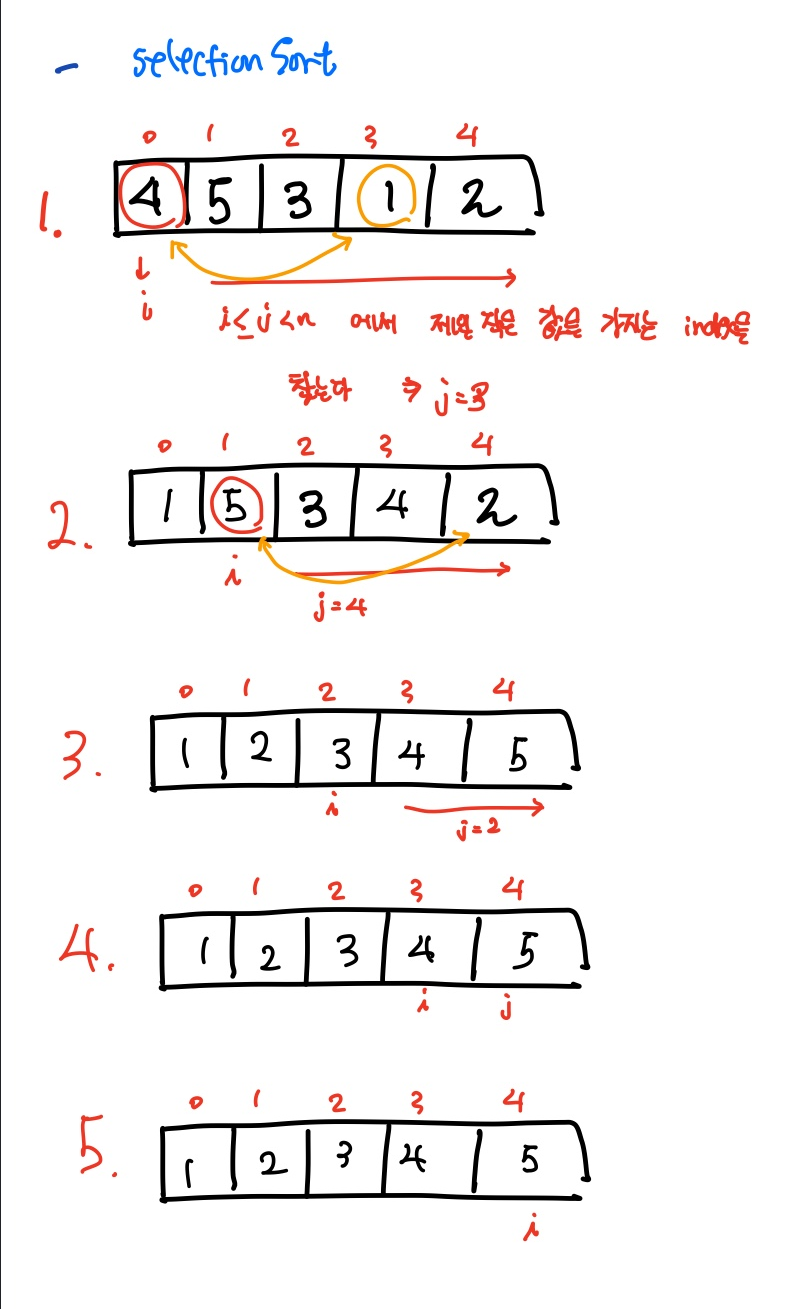 - Selection Sort
0 1 2 3 4
1. 4 5 3 1 2
↓
i
i ≤ j < n 에서 제일 작은 값을 가지는 index를
찾는다 ⇒ j=3
0 1 2 3 4
2. 1 5 3 4 2
i
j=4
0 1 2 3 4
3. 1 2 3 4 5
i
j=2
0 1 2 3 4
4. 1 2 3 4 5
i j
0 1 2 3 4
5. 1 2 3 4 5
i